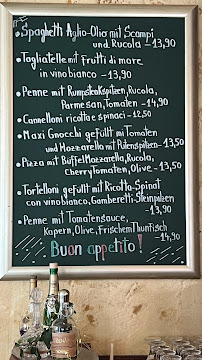 • Spaghetti Aglio-Olio mit Scampi
und Rucola – 13,90
• Tagliatelle mit frutti di mare
in vino bianco – 13,90
• Penne mit Rumpsteakspitzen, Rucola,
Parmesan, Tomaten – 14,90
• Cannelloni ricotta spinaci – 12,50
• Maxi Gnocchi gefüllt mit Tomaten
und Mozzarella mit Putenspitzen – 13,50
• Pizza mit Büffel Mozzarella, Rucola,
Cherry Tomaten, Olive – 13.50
• Tortelloni gefüllt mit Ricotta-Spinat
con vino bianco, Gamberetti, Steinpilzen
– 13,90
• Penne mit Tomatensauce,
Kapern, Olive, Frischem Thunfisch
– 14,90
Buon appetito!